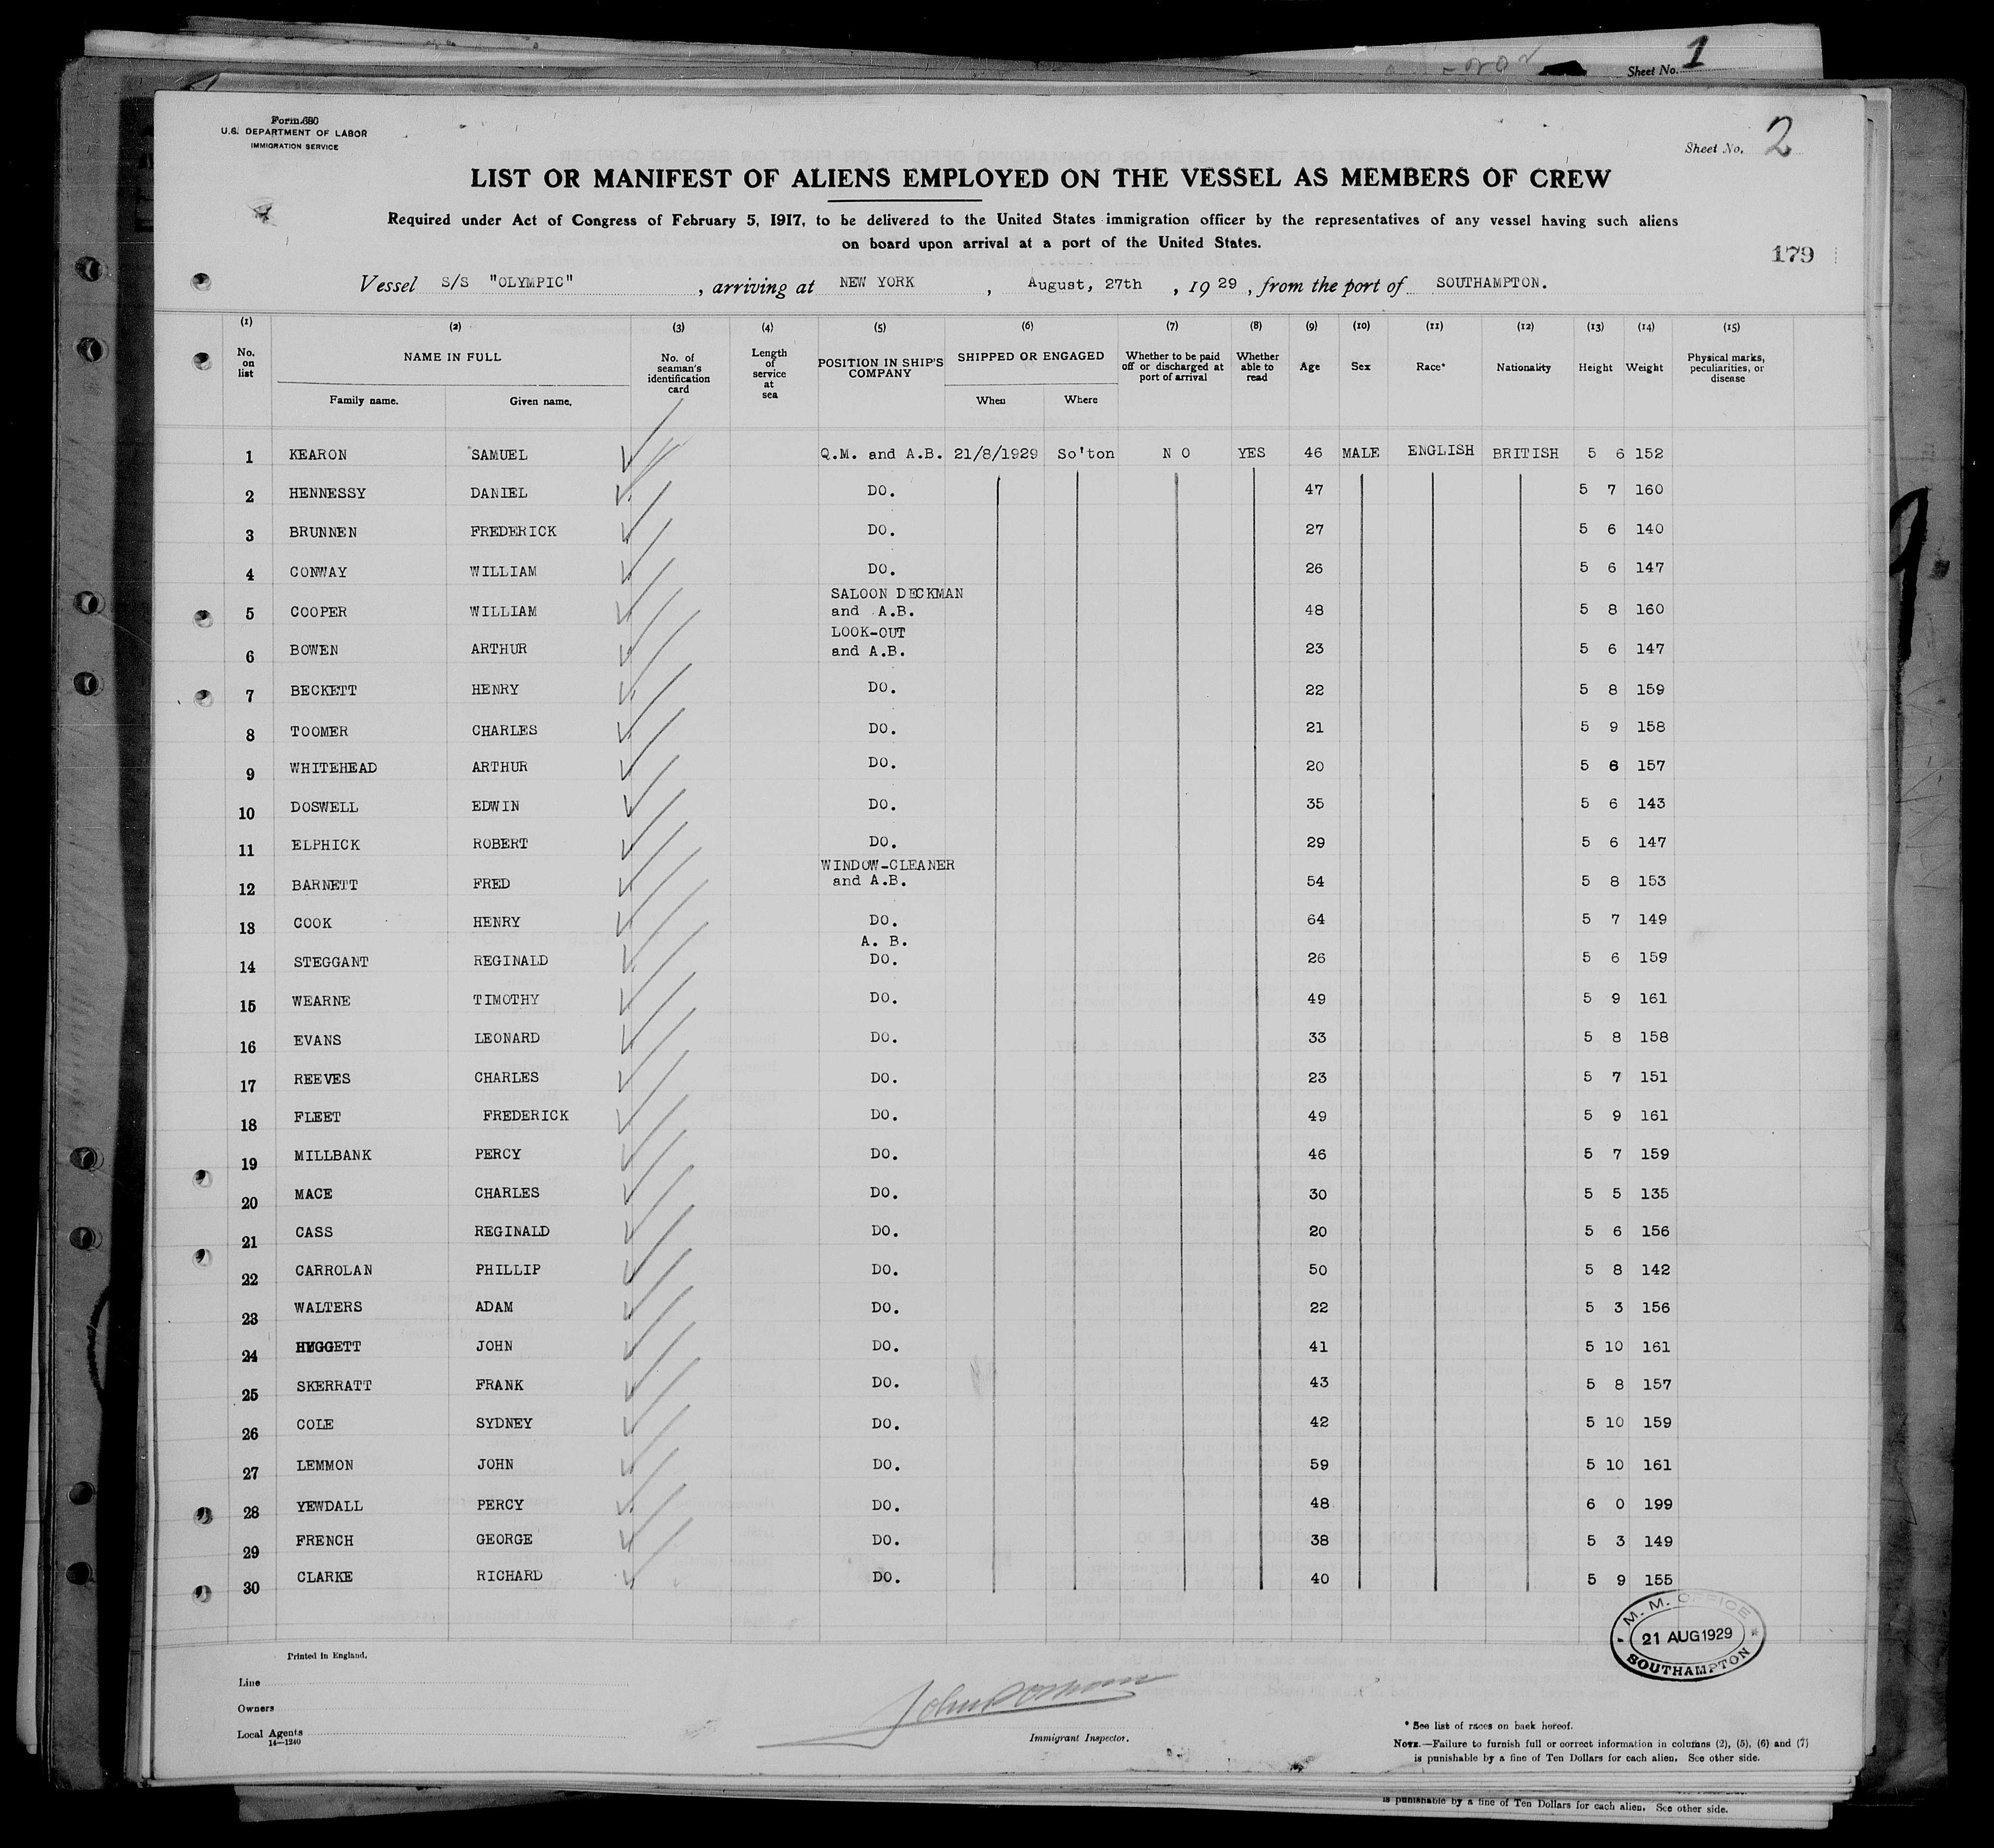 Sheet No. 1
Form 680
U.S. DEPARTMENT OF LABOR
IMMIGRATION SERVICE
Sheet No. 2
LIST OR MANIFEST OF ALIENS EMPLOYED ON THE VESSEL AS MEMBERS OF CREW
Required under Act of Congress of February 5, 1917, to be delivered to the United States immigration officer by the representatives of any vessel having such aliens
on board upon arrival at a port of the United States.
179
Vessel S/S "OLYMPIC", arriving at NEW YORK, August, 27th, 1929, from the port of SOUTHAMPTON.
(1) (2) (3) (4) (5) (6) (7) (8) (9) (10) (11) (12) (13) (14) (15)
No. on list NAME IN FULL No. of seaman's identification card Length of service at sea POSITION IN SHIP'S COMPANY SHIPPED OR ENGAGED Whether to be paid off or discharged at port of arrival Whether able to read Age Sex Race* Nationality Height Weight Physical marks, peculiarities, or disease
Family name. Given name. When Where
1 KEARON SAMUEL Q.M. and A.B. 21/8/1929 So'ton NO YES 46 MALE ENGLISH BRITISH 5 6 152
2 HENNESSY DANIEL DO. 47 5 7 160
3 BRUNNEN FREDERICK DO. 27 5 6 140
4 CONWAY WILLIAM DO. 26 5 6 147
5 COOPER WILLIAM SALOON DECKMAN and A.B. 48 5 8 160
6 BOWEN ARTHUR LOOK-OUT and A.B. 23 5 6 147
7 BECKETT HENRY DO. 22 5 8 159
8 TOOMER CHARLES DO. 21 5 9 158
9 WHITEHEAD ARTHUR DO. 20 5 6 157
10 DOSWELL EDWIN DO. 35 5 6 143
11 ELPHICK ROBERT DO. 29 5 6 147
12 BARNETT FRED WINDOW-CLEANER and A.B. 54 5 8 153
13 COOK HENRY DO. 64 5 7 149
14 STEGGANT REGINALD A. B. DO. 26 5 6 159
15 WEARNE TIMOTHY DO. 49 5 9 161
16 EVANS LEONARD DO. 33 5 8 158
17 REEVES CHARLES DO. 23 5 7 151
18 FLEET FREDERICK DO. 49 5 9 161
19 MILLBANK PERCY DO. 46 5 7 159
20 MACE CHARLES DO. 30 5 5 135
21 CASS REGINALD DO. 20 5 6 156
22 CARROLAN PHILLIP DO. 50 5 8 142
23 WALTERS ADAM DO. 22 5 3 156
24 HUGGETT JOHN DO. 41 5 10 161
25 SKERRATT FRANK DO. 43 5 8 157
26 COLE SYDNEY DO. 42 5 10 159
27 LEMMON JOHN DO. 59 5 10 161
28 YEWDALL PERCY DO. 48 6 0 199
29 FRENCH GEORGE DO. 38 5 3 149
30 CLARKE RICHARD DO. 40 5 9 155
M. M. OFFICE
21 AUG 1929
SOUTHAMPTON
Printed in England.
Line
Owners
Local Agents
14—1240
John
Immigrant Inspector.
* See list of races on back hereof.
NOTE.—Failure to furnish full or correct information in columns (2), (5), (6) and (7)
is punishable by a fine of Ten Dollars for each alien. See other side.
is punishable by a fine of Ten Dollars for each alien. See other side.